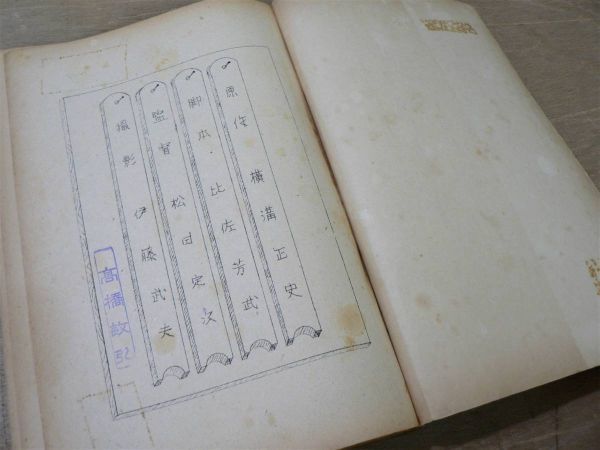 原作 横溝正史
脚本・比佐芳武
監督 松田定次
撮影 伊藤武夫
高橋